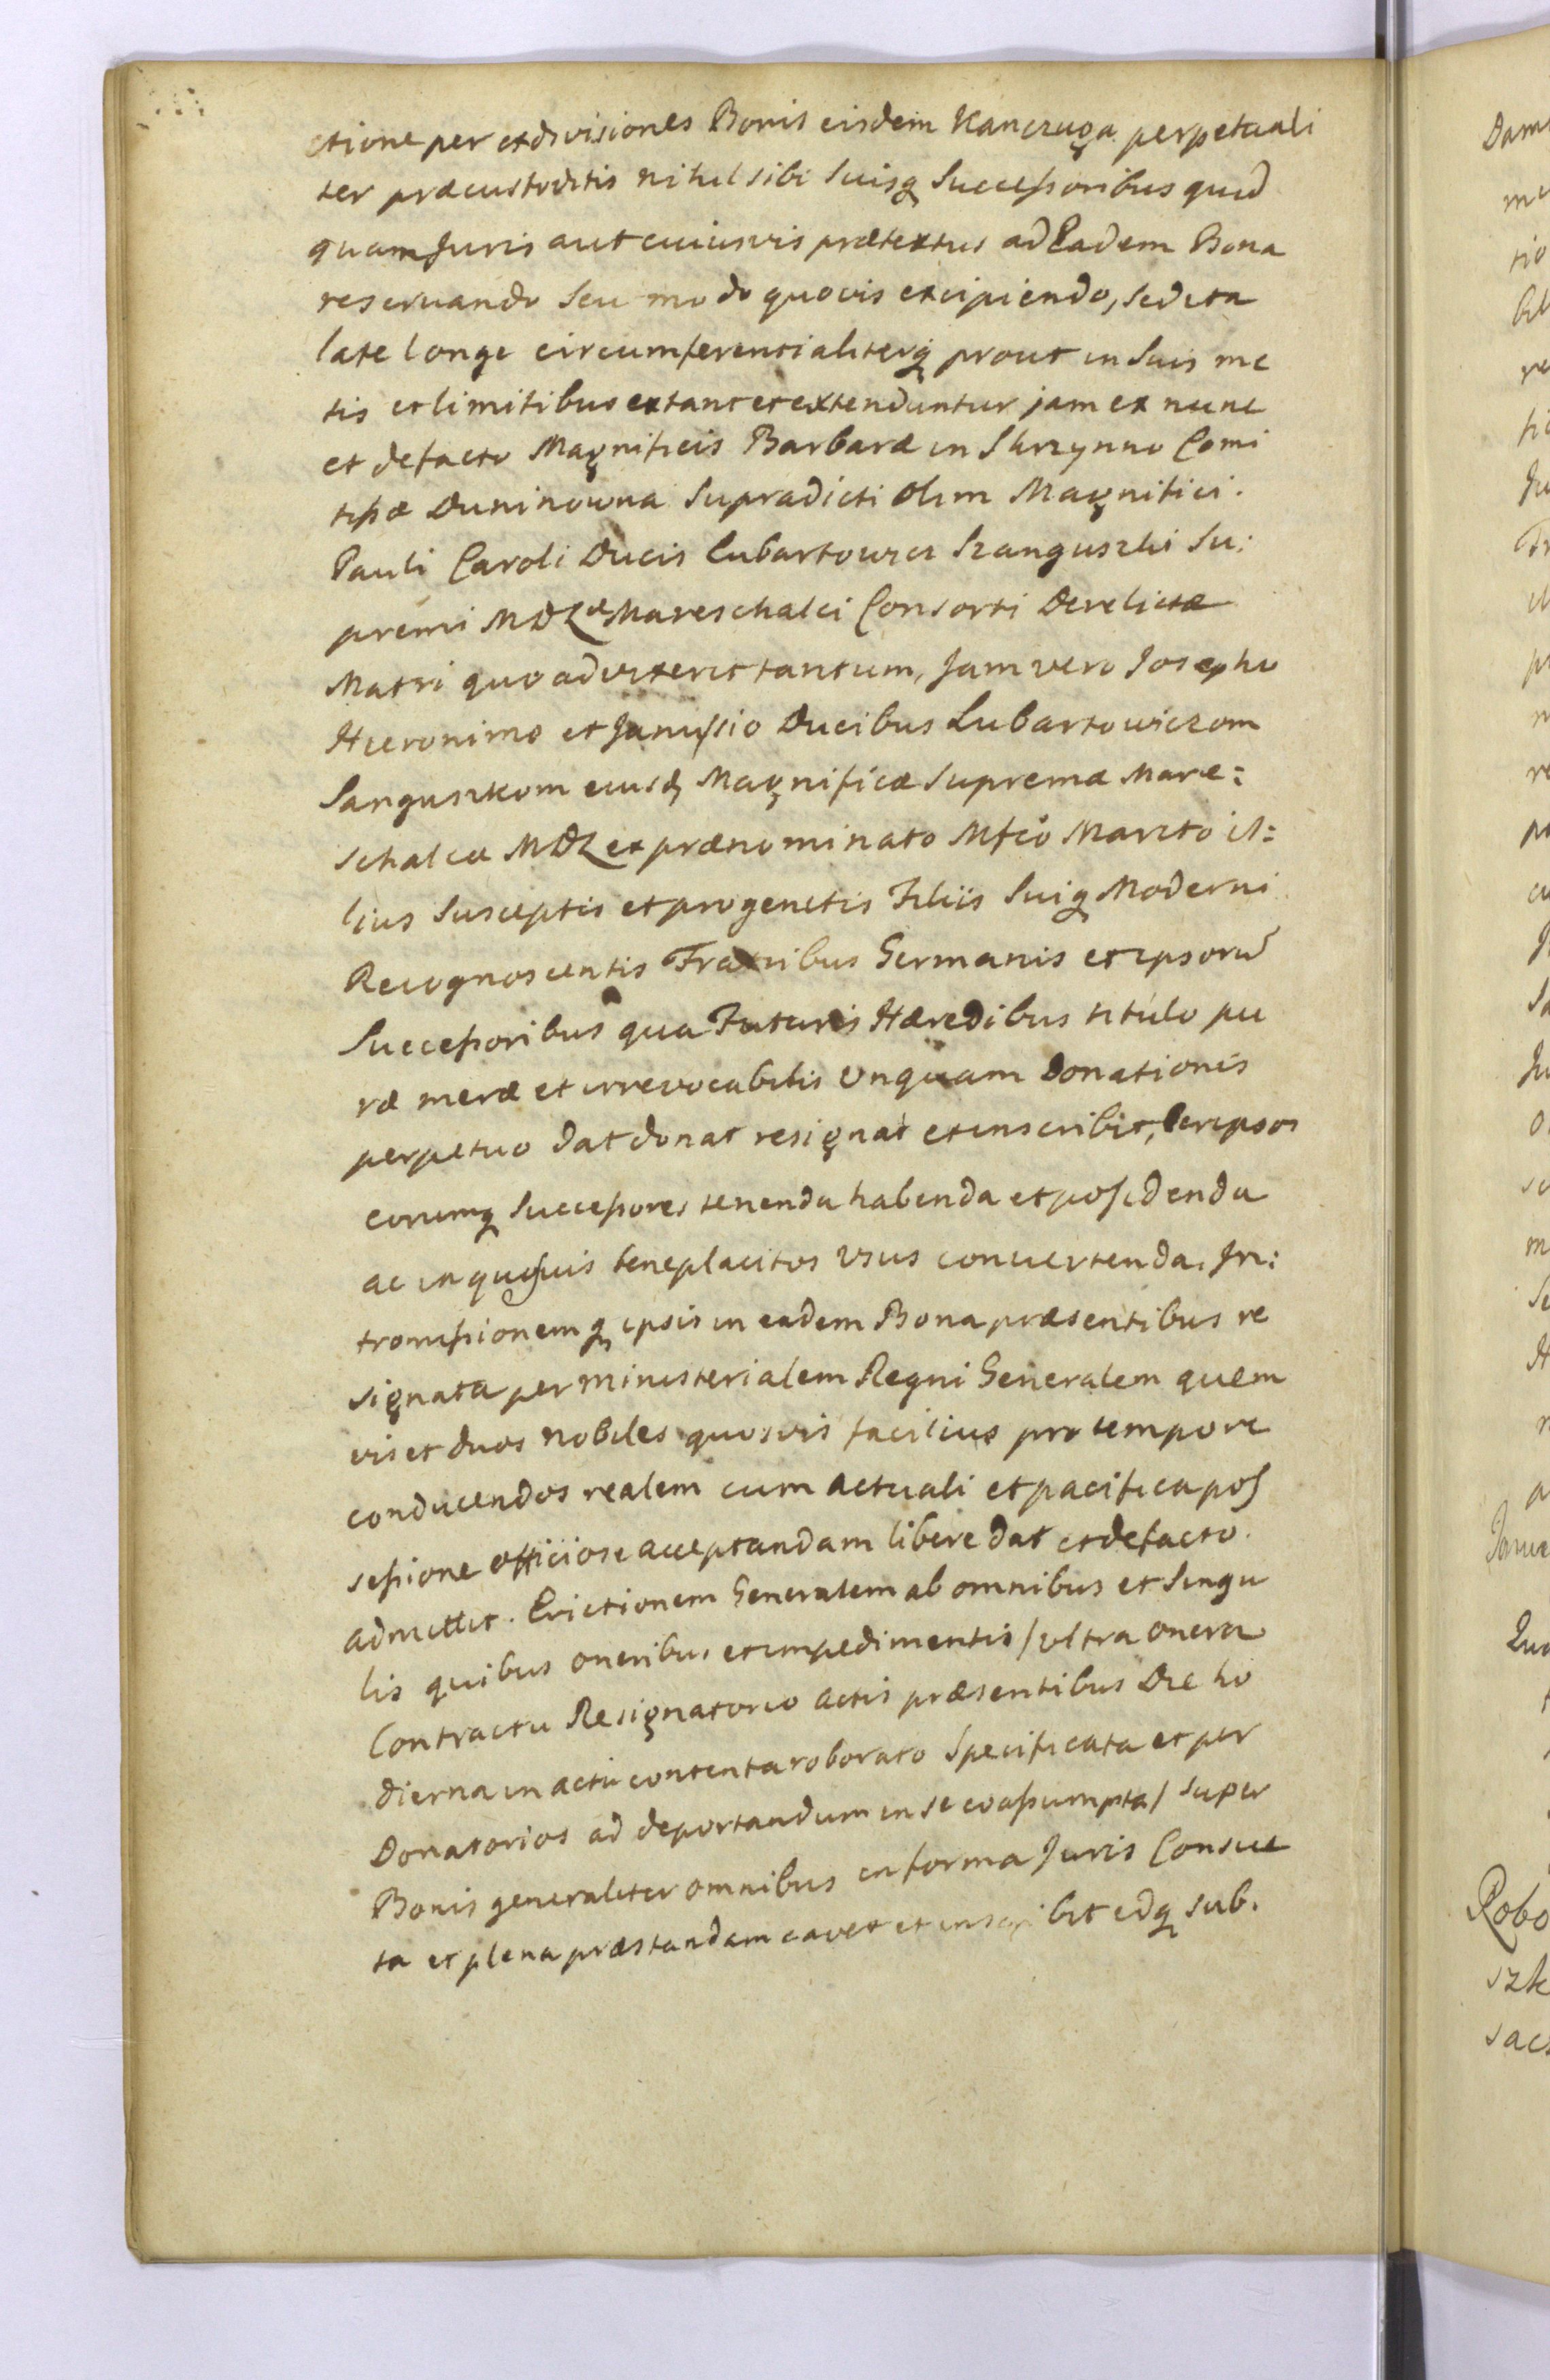 ctione per exdivisiones Bonis eisdem Kanczuga perpetuali
ter præcustoditis nihil sibi Suisq Successoribus quid
quam Juris aut cuiusvis prætextus ad Eadem Bona
reservando Seu modo quovis excipiendo, sed ita
late longe circumferentialiterq prout in Suis me
tis et limitibus extant et extenduntur jam ex nunc
et defacto Magnificis Barbaræ in Skrzynno Comi
tissæ Duninowna Supradicti Olim Magnifici.
Pauli Caroli Ducis Lubartowicz Szanguszki Su:
premi MDL Mareschalci Consorti Derelictæ
Matri quo advixerit tantum, Jam vero Josepho
Hieronimo et Janussio Ducibus Lubartowiczom
Sanguszkom eiusd Magnificæ Supremæ Mare:
schalcæ MDL ex prænominato Mfco Marito il:
lius Susceptis et progenitis Filiis Suiq Moderni
Recognoscentis Fratribus Germanis et ipsorū
Successoribus qua Futuris Hæredibus titulo pu
ræ meræ et irrevocabilis Unquam Donationis
perpetuo dat donat resignat et inscribit, Per ipsos
eorumq Successores tenenda habenda et possidenda
ac in quosvis beneplacitos Usus convertenda. In:
tromissionemq ipsis in eadem Bona præsentibus re
signata per Ministerialem Regni Generalem quem
vis et duos Nobiles quosvis facilius pro tempore
conducendos realem cum actuali et pacifica pos
sessione officiose acceptandam libere dat et defacto
admittit. Evictionem Generalem ab omnibus et Singu
lis quibus oneribus et impedimentis / ultra onera
Contractu Resignatorio actis præsentibus Die ho
dierna in actu contenta roborato Specificata et per
Donatorios ad deportandum in se coassumpta / super
Bonis generaliter omnibus in forma Juris Consue
ta et plena præstandam cavet et inscribit idq sub.